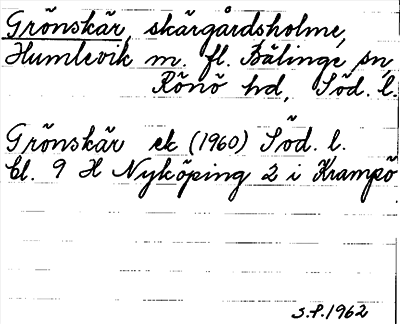 Grönskär, skärgårdsholme,
Humlevik m. fl. Bälinge sn,
Rönö hd, Söd. l.
Grönskär ek (1960) Söd. l.
bl. 9 H Nyköping 2 i Krampö
S.P. 1962